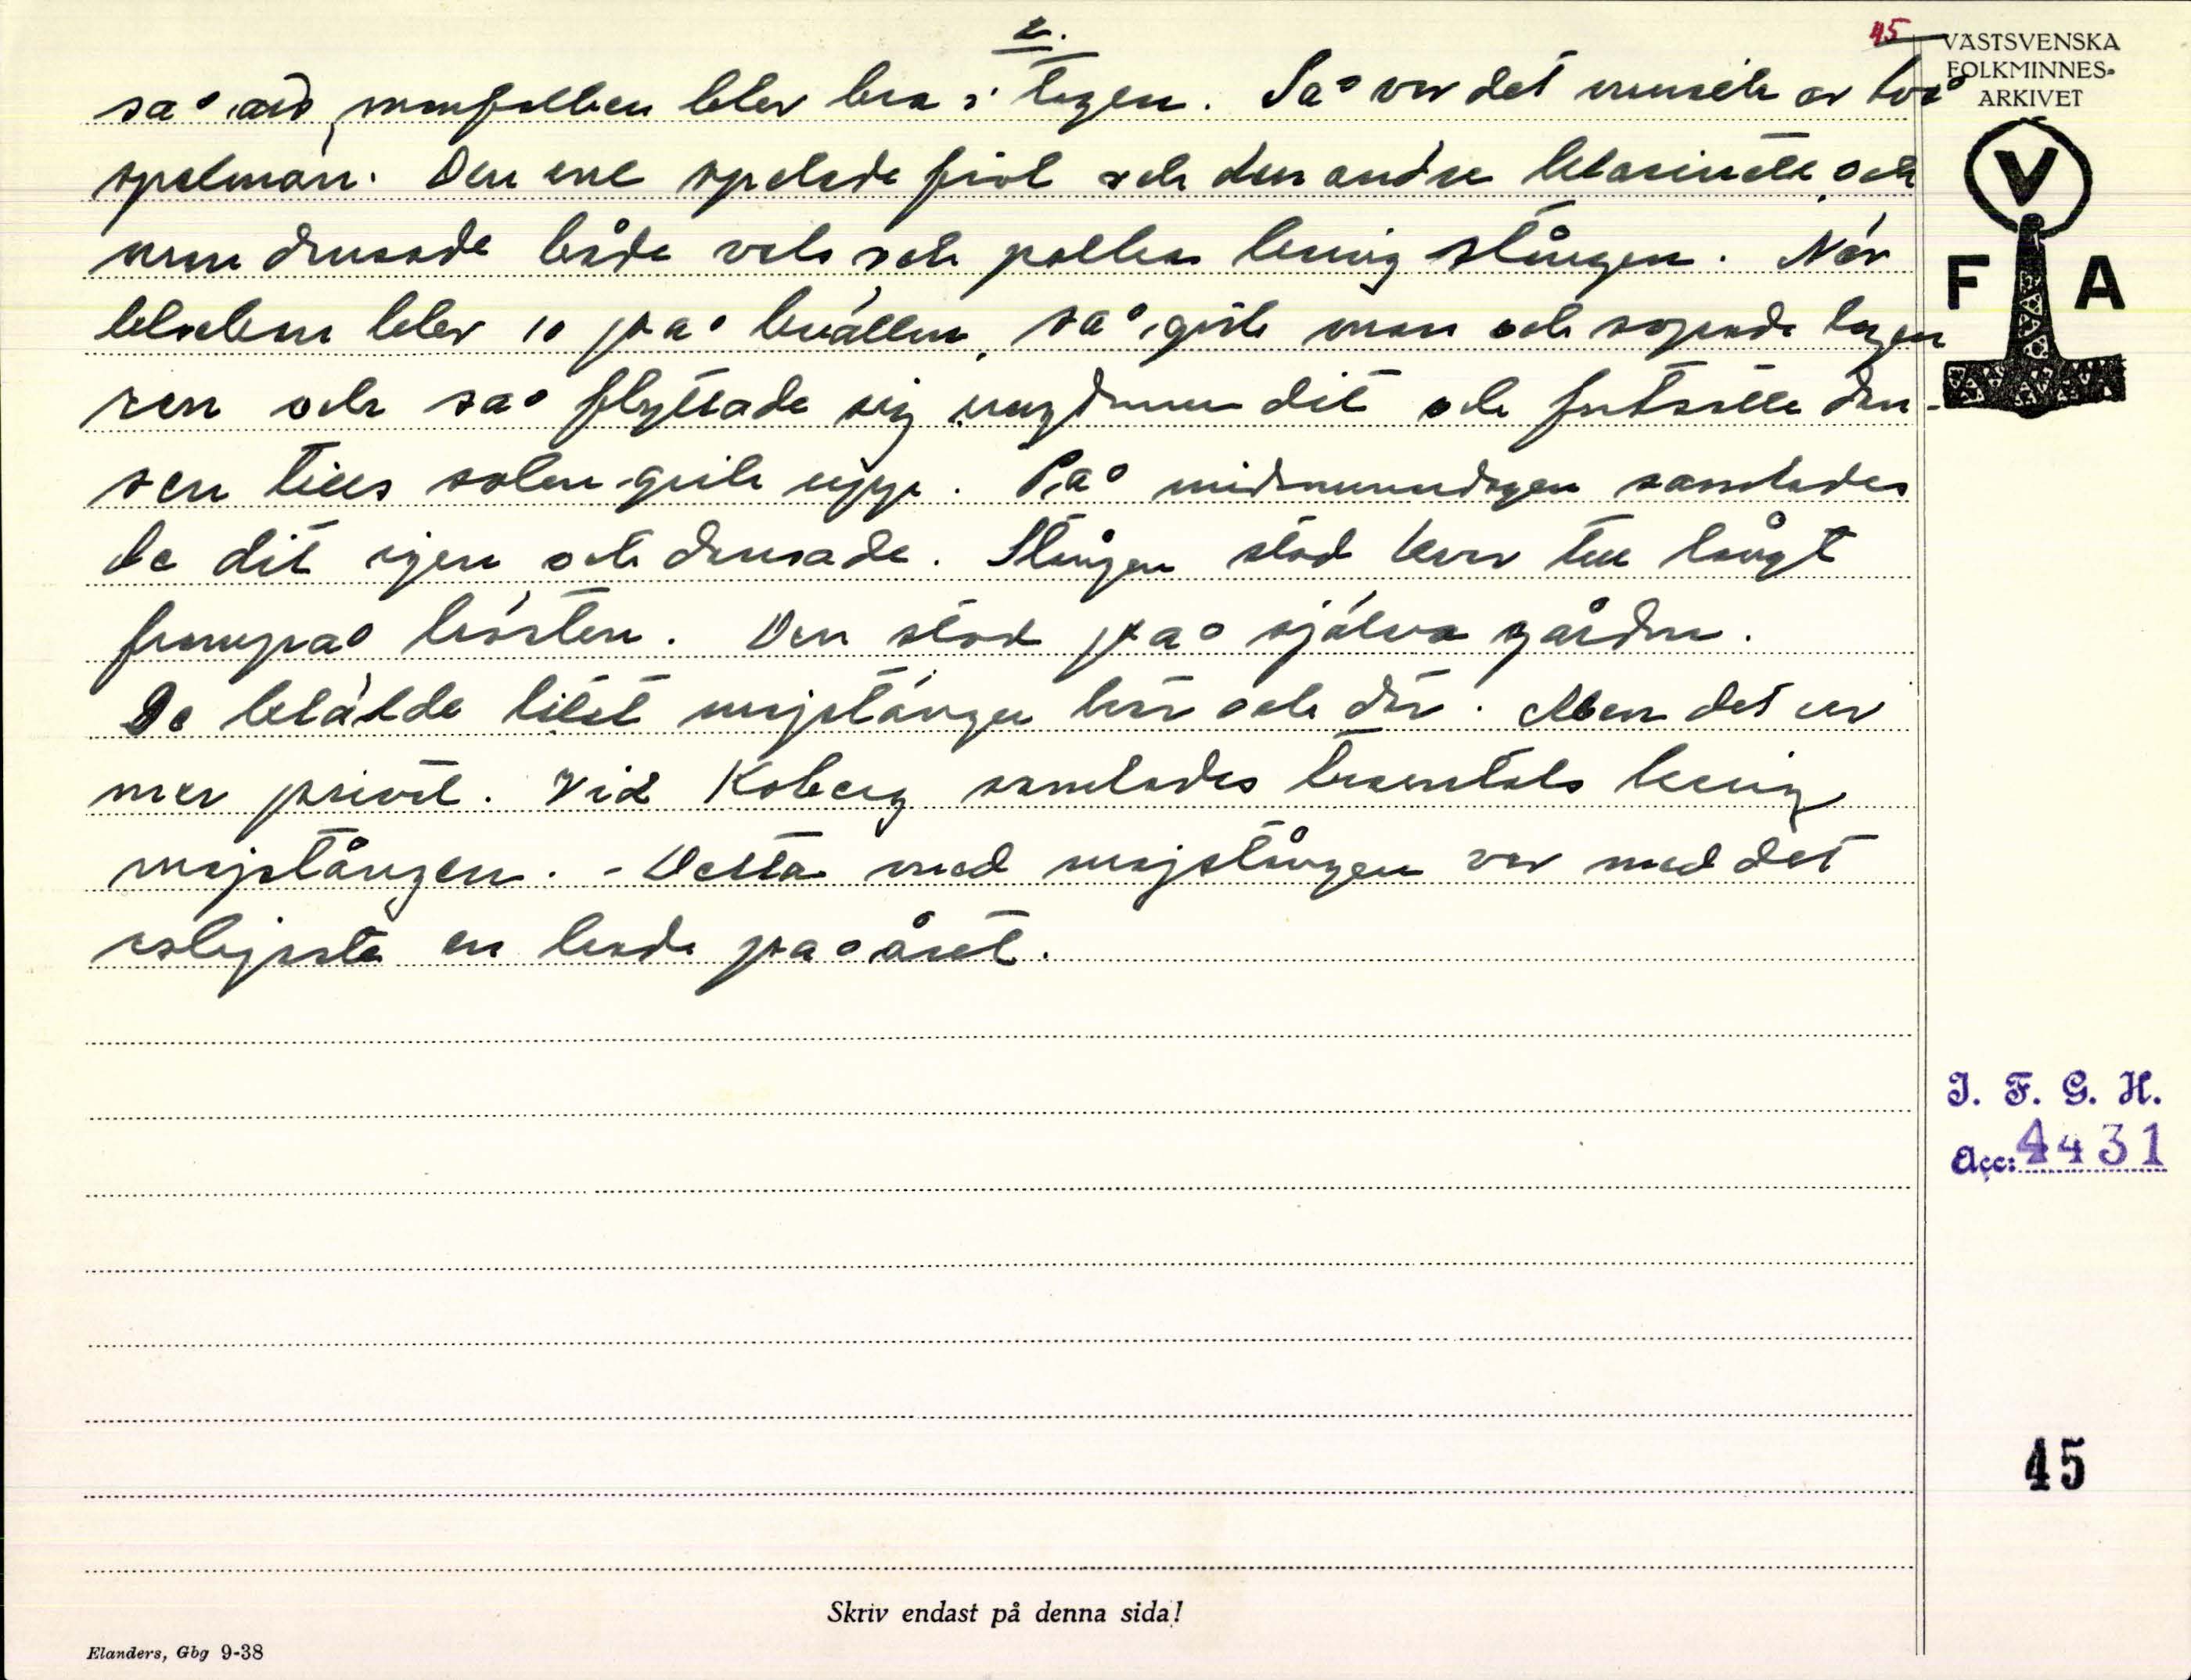 2.
45
VÄSTSVENSKA
FOLKMINNES-
ARKIVET
V
F A
så att manfolken blev bra i tagen. Så var det musik av två
spelmän. Den ene spelade fiol och den andre klarinett, och
man dansade både vals och polka kring stången. När
klockan blev 10 på kvällen, så gick man och sopade logen
ren och så flyttade sig ungdomen dit och fortsatte dan-
sen tills solen gick upp. På midsommardagen samlades
de dit igen och dansade. Stången stod kvar till långt
frampå hösten. Den stod på själva gården.
De klädde litet majstänger här och där. Men det var
mer privat. Vid Koberg samlades tusentals kring
majstången. - Detta med majstången var med det
roligaste en hade på året.
I. F. G. H.
Acc: 4431
45
Skriv endast på denna sida!
Elanders, Gbg 9-38